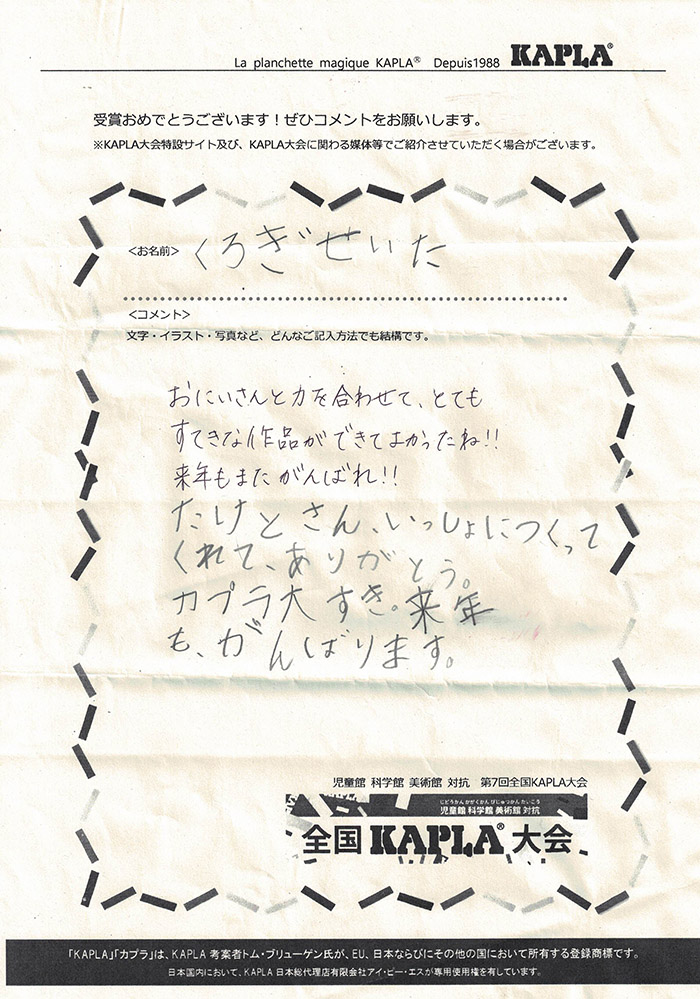 La planchette magique KAPLA® Depuis1988 KAPLA®
受賞おめでとうございます！ぜひコメントをお願いします。
※KAPLA大会特設サイト及び、KAPLA大会に関わる媒体等でご紹介させていただく場合がございます。
<お名前> くろぎせいた
<コメント>
文字・イラスト・写真など、どんなご記入方法でも結構です。
おにいさんと力を合わせて、とても
すてきな作品ができてよかったね!!
来年もまたがんばれ!!
たけとさん、いっしょにつくって
くれて、ありがとう。
カプラ大すき。来年
も、がんばります。
児童館 科学館 美術館 対抗 第7回全国KAPLA大会
じどうかんかがくかんびじゅつかんたいこう
児童館 科学館 美術館 対抗
全国KAPLA®大会
「KAPLA」「カプラ」は、KAPLA 考案者トム・ブリューゲン氏が、EU、日本ならびにその他の国において所有する登録商標です。
日本国内において、KAPLA 日本総代理店有限会社アイ・ピー・エスが専用使用権を有しています。